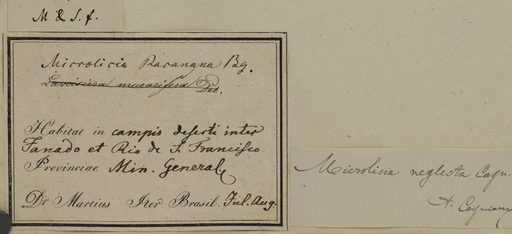 M & S. f.
Microlicia Paranana Bg.
Lavoisiera mucorifera Dec.
Habitat in campis deserti inter
Tanado et Rio de S. Francisco
Provinciae Min. General
Dr Martius Iter Brasil. Jul. Aug.
Microlicia neglecta Cogn.
A. Cogniaux